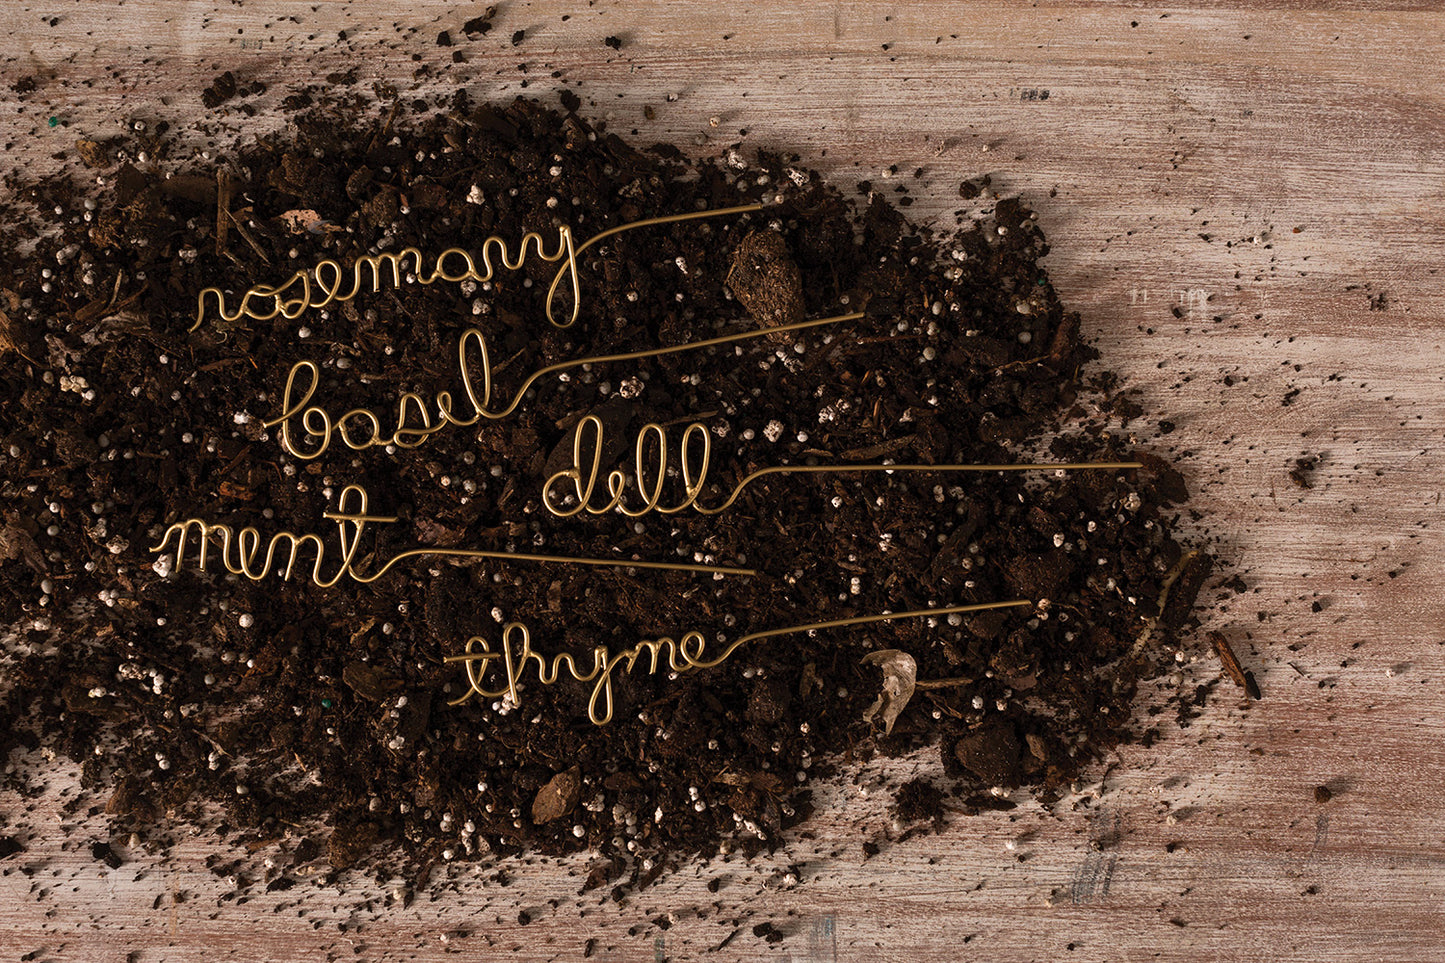 rosemary
basel
dell
ment
thyme